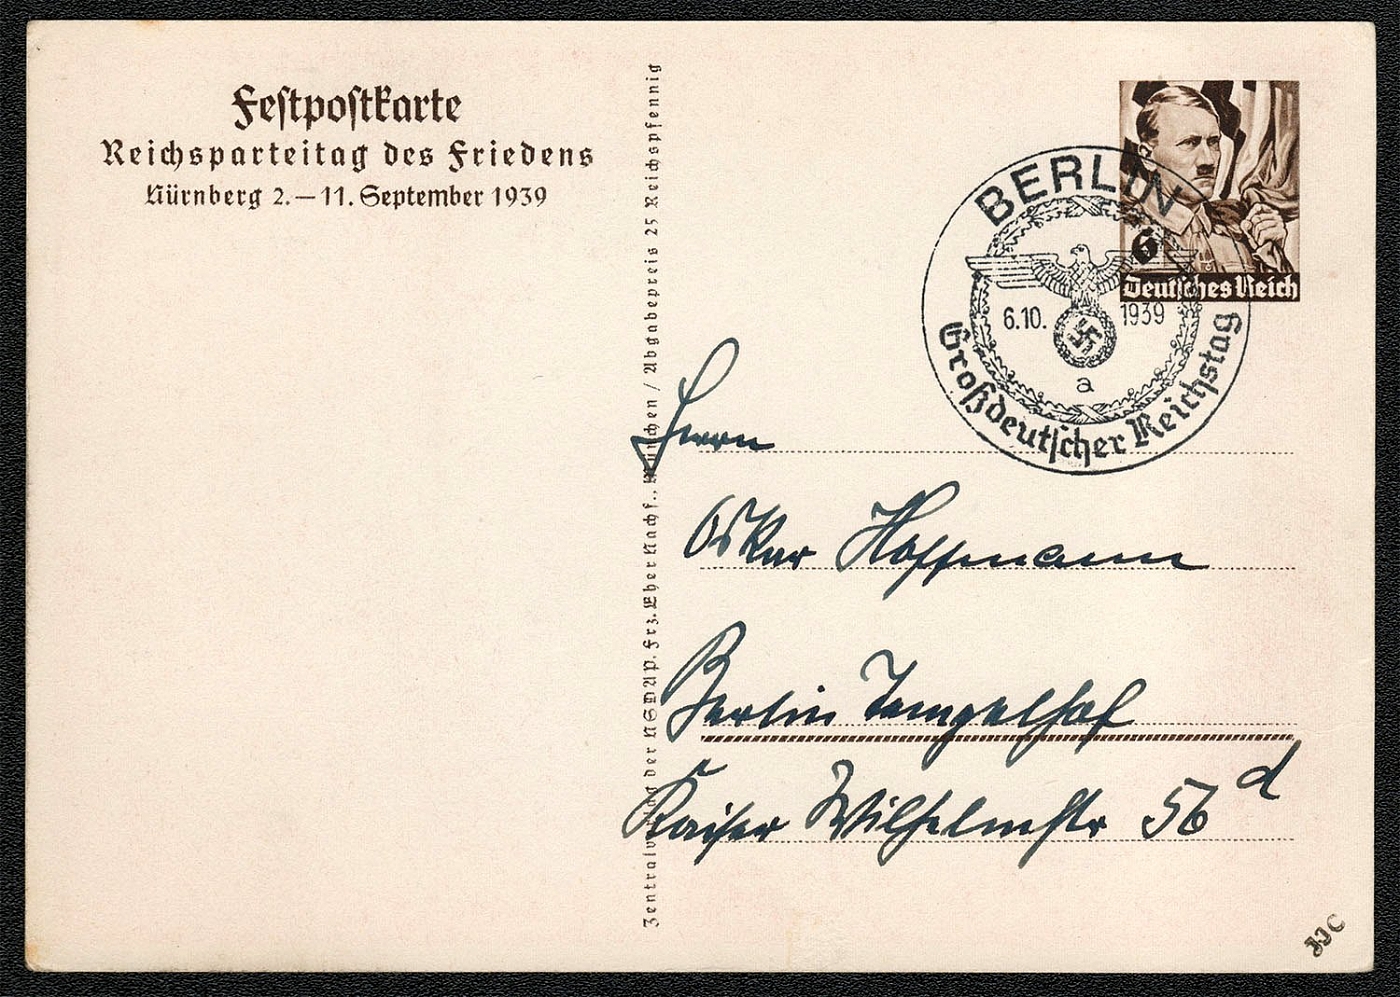 Festpostkarte
Reichsparteitag des Friedens
Nürnberg 2.—11. September 1939
Zentralverlag der NSDAP. Frz. Eher Nachf., München / Abgabepreis 25 Reichspfennig
6
Deutsches Reich
BERLIN
6.10. 1939
a
Großdeutscher Reichstag
Herrn
Oskar Hoffmann
Berlin Tempelhof
Kaiser Wilhelmstr 56 d